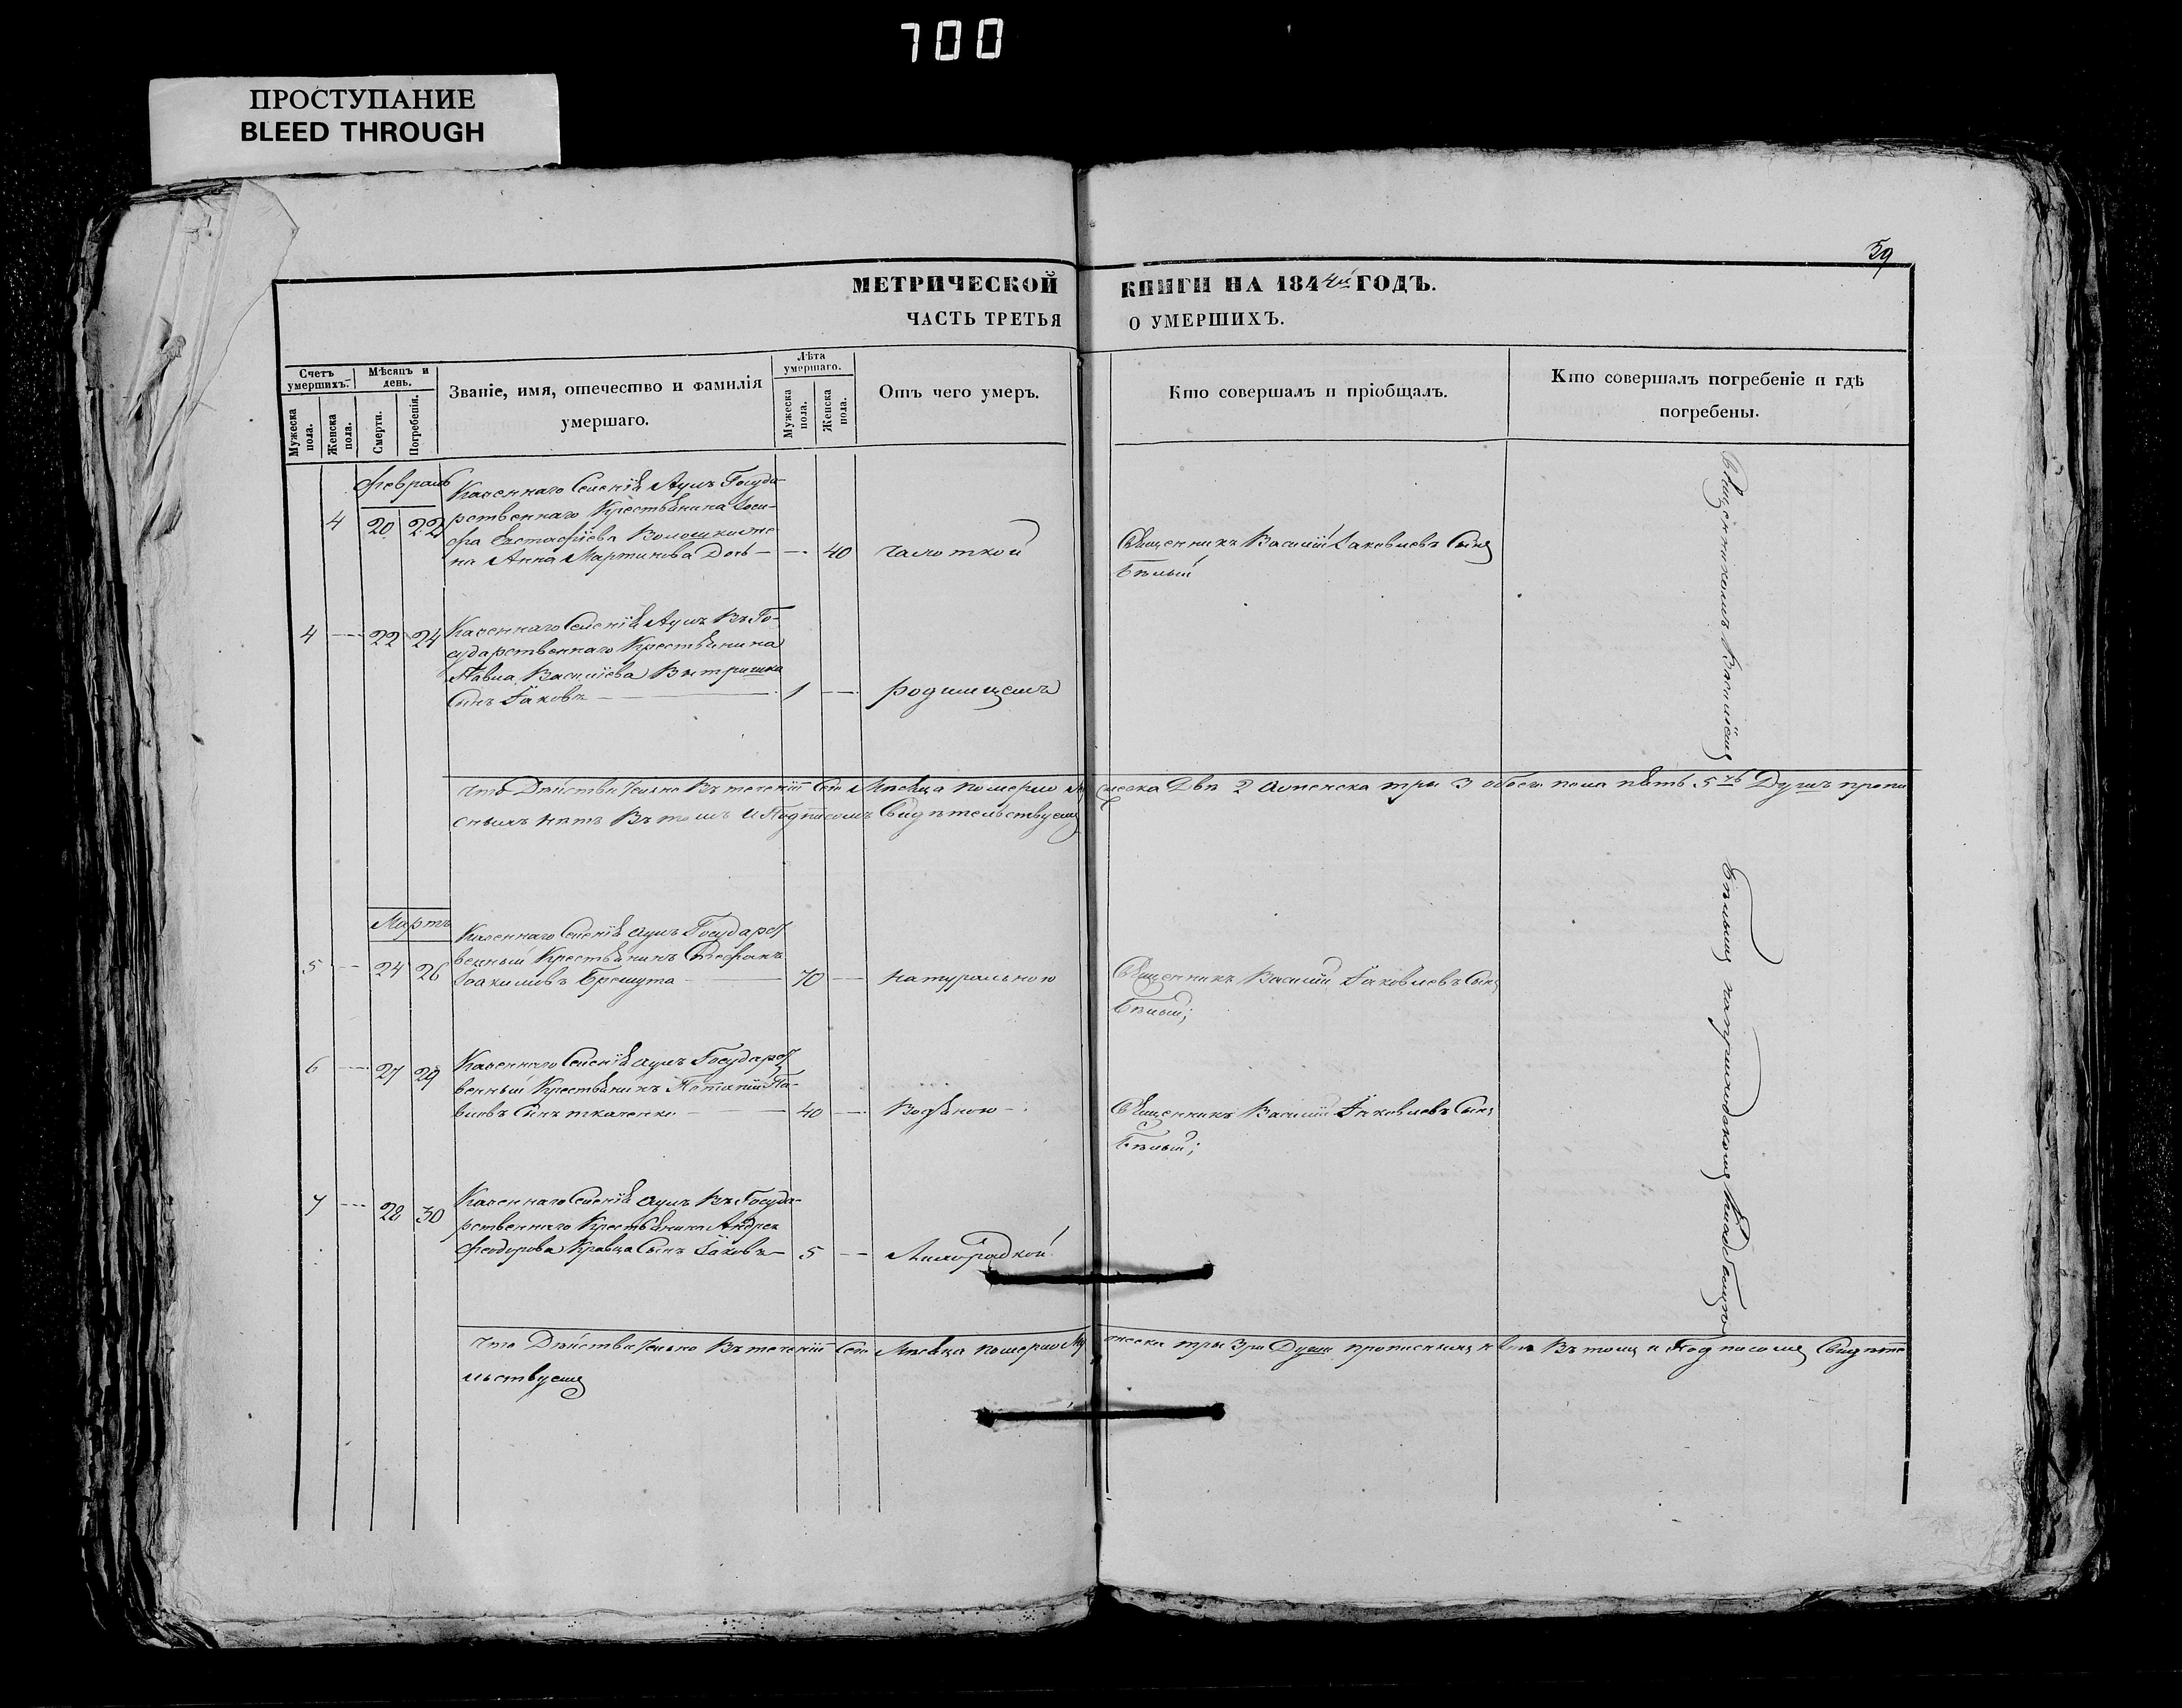 700
ПРОСТУПАНИЕ
BLEED THROUGH
39
МЕТРИЧЕСКОЙ КНИГИ НА 1844й ГОДЪ.
ЧАСТЬ ТРЕТЬЯ О УМЕРШИХЪ.
Счетъ умершихъ.
Мужеска пола.
Женска пола.
Мѣсяцъ и день.
Смерти.
Погребенія.
Званіе, имя, отечество и фамилія
умершаго.
Лѣта умершаго.
Мужеска пола.
Женска пола.
Отъ чего умеръ.
Кто совершалъ и пріобщалъ.
Кто совершалъ погребеніе и гдѣ
погребены.
Февраль
Казеннаго Селенія Ауль Госуда-
4 20 22 рственнаго Крестьянина Іоси-
фа Евстафіева Волошина же
на Анна Мартинова Дочь — 40 чахоткой
Священникъ Василій Іаковлевъ Сынъ
Бѣлый
Казеннаго Селенія Ауль Въ Го-
4 — 22 24 сударственнаго Крестьянина
Павла Василіева Вѣтришка
Сынъ Іаковъ 1 — родимцемъ
Что Дѣйствительно Въ теченіи Сего Мѣсяца померло Мужеска Двѣ 2 а женска три 3 обоего пола пять 5ть Душъ пропи
сныхъ нѣтъ Въ томъ и Подписомъ Свидѣтельствуемъ
Мартъ
Казеннаго Селенія Ауль Государст
5 — 24 26 венный Крестьянинъ Стефанъ
Іоакимовъ 70 — натуральною
Священникъ Василій Іаковлевъ Сынъ
Бѣлый;
Казеннаго Селенія Ауль Государст
6 — 27 29 венный Крестьянинъ Потапій Па-
вловъ Сынъ Ткаченко 40 — Водяною
Священникъ Василій Іаковлевъ Сынъ
Бѣлый;
7 — 28 30 Казеннаго Селенія Ауль Въ Госуда-
рственнаго Крестьянина Андрея
Феодорова Кравца Сынъ Іаковъ — 5 — Лихорадкой
Что Дѣйствительно Въ теченіи Сего Мѣсяца померло Мужеска три 3ри Души прописныхъ нѣтъ Въ томъ и Подписомъ Свидѣте
льствуемъ
Священникомъ Василіемъ
Бѣлымъ на приходскомъ Кладбищѣ